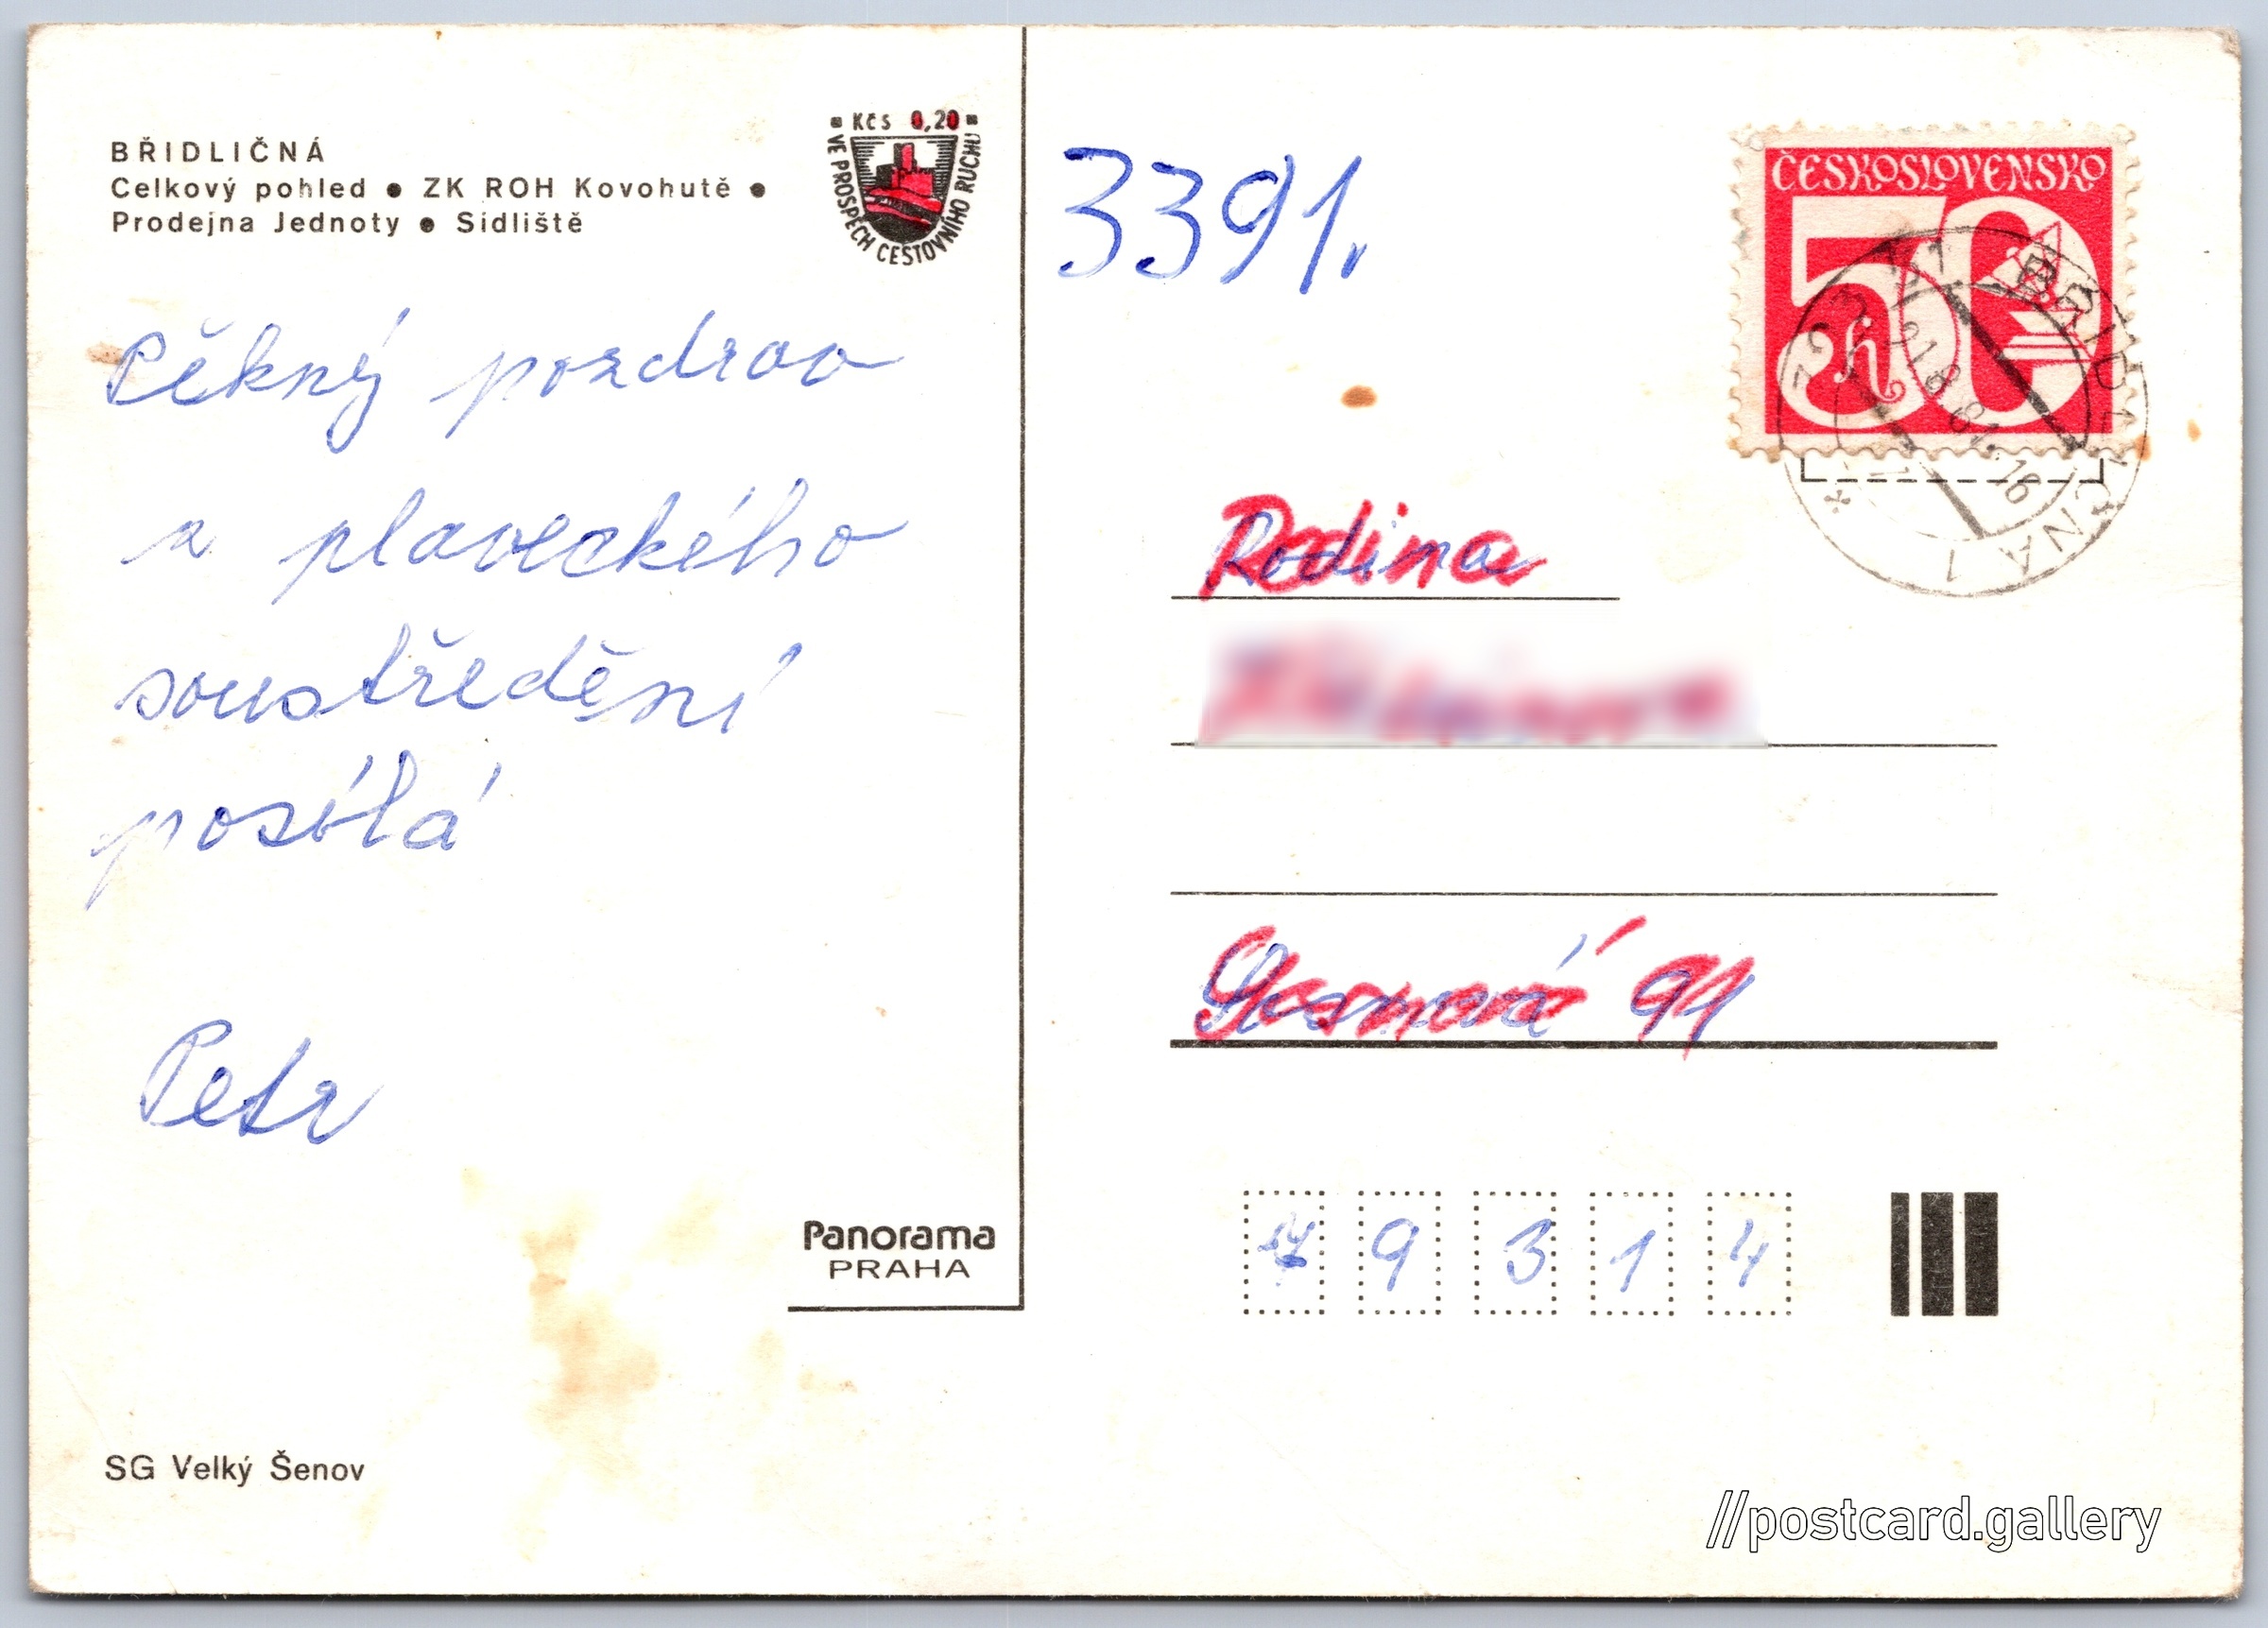 BŘIDLIČNÁ
Celkový pohled ● ZK ROH Kovohutě ●
Prodejna Jednoty ● Sídliště
Kčs 0,20
VE PROSPĚCH CESTOVNÍHO RUCHU
Pěkný pozdrav
z plaveckého
soustředění
posílá
Petr
Panorama
PRAHA
SG Velký Šenov
3391.
ČESKOSLOVENSKO
50 h
793 51 BŘIDLIČNÁ 1
21.8.81.-16
Rodina
91
7 9 3 1 4
//postcard.gallery